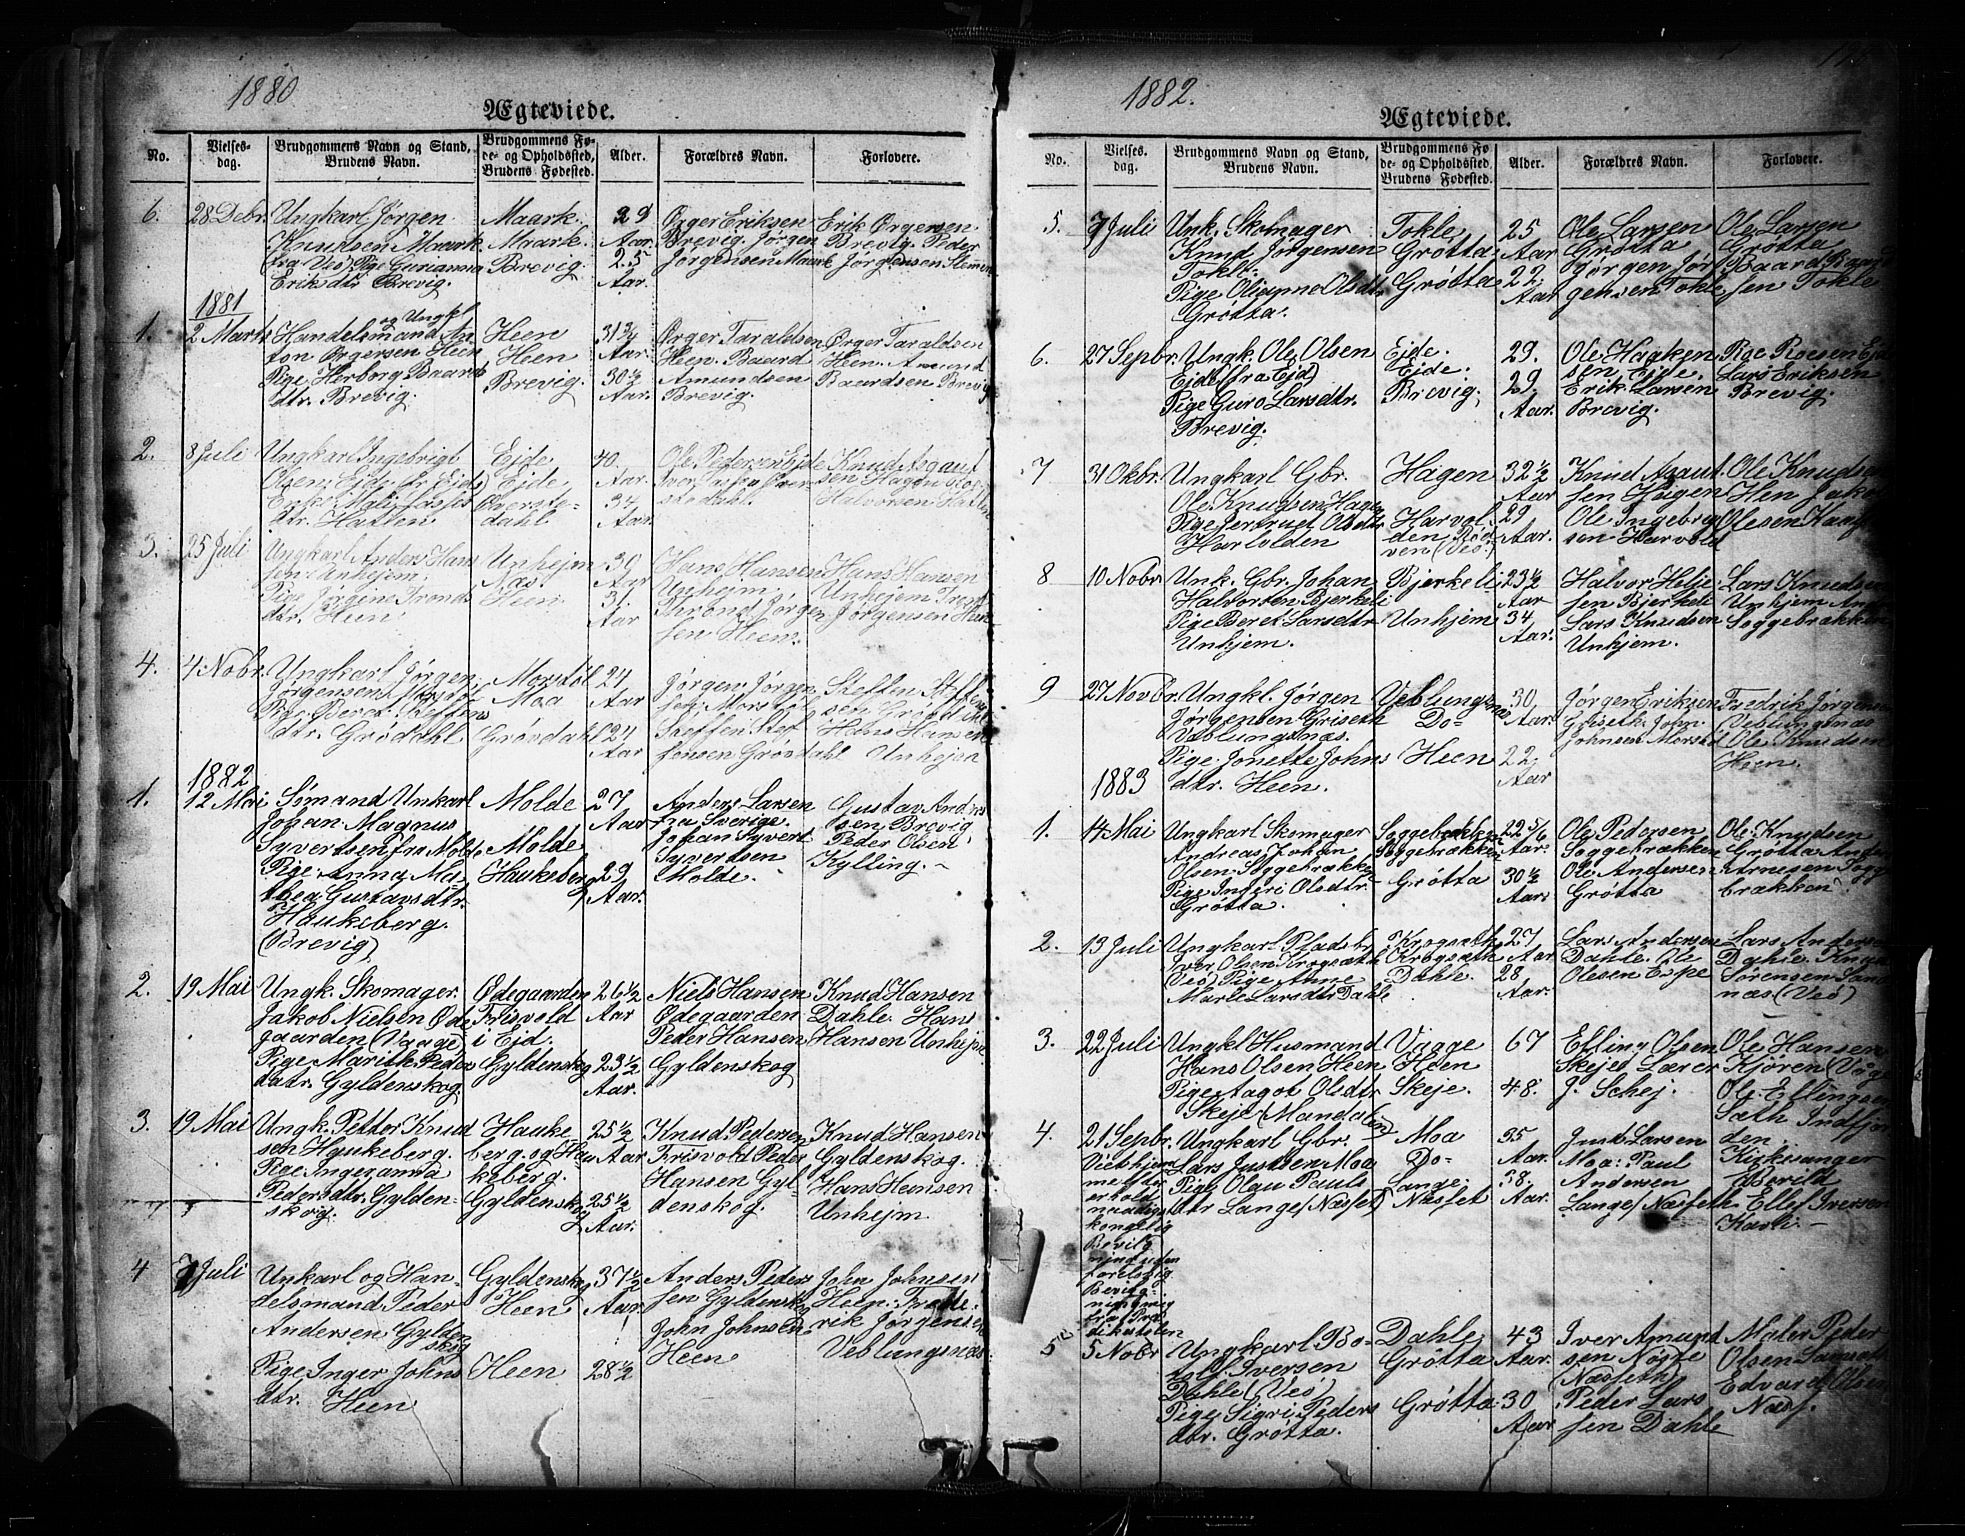 1880
Ægteviede.
No.
Vielses-
dag.
Brudgommens Navn og Stand,
Brudens Navn.
Brudgommens Fø-
de- og Opholdssted,
Brudens Fødested.
Alder.
Forældres Navn.
Forlovere.
6. 28 Debr.
Ungkarl Jørgen
Knudsen Maark
(fra Veø) Pige Gurianna
Eriksdtr Brevig.
Maark.
Maark.
Brevig.
29
Aar.
25
Aar.
Ørger Eriksen
Brevig. Jørgen
Jørgensen Maark
Erik Ørgersen
Brevig. Peder
Jørgensen
1881
1. 2 Marts
og Ungkl
Handelsmand An-
ton Ørgersen Heen
Pige Herborg Baards
dtr. Brevig.
Heen
Heen
Brevig.
31 3/4
Aar.
30 1/2
Aar.
Ørger Taraldsen
Heen. Baard
Amundsen
Brevig.
Ørger Taraldsen
Heen. Amund
Baardsen Brevig
2. 8 Juli
Ungkarl Ingebrigt
Olsen Ejde (fr Ejd)
Enke Mali
dtr. Hatlen
Ejde
Ejde
Øverste-
dahl
40.
Aar.
34
Aar.
Ole Pedersen Ejde
stedahl.
Knud Asgaut
sen Hagen
Halvorsen Hatlen
3. 25 Juli
Ungkarl Anders Hans
sen Unhjem.
Pige Jørgine Tronds
dtr. Heen
Unhjem
Næs.
Heen
30
Aar
31.
Aar
Hans Hansen
Unhjem
Thrond Jørgen
sen Heen.
Hans Hansen
Unhjem Trond
Jørgensen Heen
4. 4 Nobr.
Ungkarl Jørgen
Jørgensen Morstøl
Pige Beret Steffens
dtr. Grødahl
Morstøl
Moa
Grøvdahl
24
Aar
24
Aar
Jørgen Jørgen
sen Morstøl
Steffen Stef
fensen Grøvdahl
Steffen Steffen
sen Grødahl
Hans Hansen
Unhejm
1882
1. 12 Mai
Sømand Unkarl
Johan Magnus
Syvertsen fra Molde
Pige Anna Ma-
thea Gustavsdtr.
Haukeberg.
(Brevig)
Molde
Molde
Haukeberg
27
Aar
29
Aar.
Anders Larsen
fra Sverige.
Johan Syvert
Syvertsen
Molde.
Gustav Andrea
sen Brevig
Peder Olsen
Kylling. -
2. 19 Mai
Ungk. Skomager.
Jakob Nielsen Øde
gaarden (Vaage)
Pige Marith Peders
datr. Gyldenskog.
Ødegaarden
Frisvold
i Ejd.
Gyldenskog
26 1/2
Aar
23 1/2
Aar.
Niels Hansen
Ødegaarden
Peder Hansen
Gyldenskog
Knud Hansen
Dahle. Hans
Hansen Unhejm
3. 19 Mai
Ungk. Petter Knud
sen Haukeberg.
Pige Ingeranna
Pedersdtr. Gylden-
skog.
Hauke
berg. og Hau
keberg.
Gyldenskog
25 1/2
Aar
25 1/2
Aar.
Knud Pedersen
Frisvold Peder
Hansen Gyl-
denskog.
Knud Hansen
Gyldenskog.
Hans Hansen
Unhejm
4 7 Juli
Unkarl og Han-
delsmand Peder
Andersen Gylden
skog
Pige Inger Johns
dtr. Heen
Gyldenskog
Heen
Heen
37 1/2
Aar.
28 1/2
Anders Peders
sen Gyldenskog
John Johnsen
Heen
John Johnsen
Heen. Frede-
rik Jørgensen
Veblungsnæs
1882.
Ægteviede.
No.
Vielses-
dag.
Brudgommens Navn og Stand,
Brudens Navn.
Brudgommens Fø
de- og Opholdssted,
Brudens Fødested.
Alder.
Forældres Navn.
Forlovere.
5. 7 Juli
Unk. Skomager
Knud Jørgensen
Tokle.
Pige Olianna Olsdtr
Grøtta.
Tokle
Grøtta
Grøtta
25
Aar
22
Aar
Ole Larsen
Grøtta
Jørgen Jør
gensen Tokle
Ole Larsen
Grøtta
Baard Knud
sen Tokle
6. 27 Sepbr.
Ungk. Ole Olsen
Ejde (fra Ejd)
Pige Guro Larsdtr.
Brevig.
Ejde.
Ejde.
Brevig.
29.
29
Aar.
Ole Haaken
sen Ejde.
Erik Larsen
Brevig.
Ejde
Lars Eriksen
Brevig.
7 31 Okbr.
Ungkarl Gbr.
Ole Knudsen Hagen
Pige Gertrugt Olsdtr
Harvolden
Hagen
Harvol-
den Rød
ven (Veø)
32 1/2
Aar
29
Aar.
Knud Asgaut
sen Hagen
Ole Ingebrigt
sen Harvold
Ole Knudsen
Hen
Olsen
8 10 Nobr
Unk. Gbr. Johan
Halvorsen Bjerkeli
Pige Beret Larsdtr
Unhjem.
Bjerkeli
Unhjem
23 1/2
Aar
34
Aar.
Halvor Helje
sen Bjerkeli
Lars Knudsen
Unhjem.
Lars Knudsen
Unhjem
Soggebrækken
9 27 Novbr.
Ungkl. Jørgen
Jørgensen Griseth
Veblungsnæs.
Pige Jonette Johns
dtr. Heen.
Veblungsnæs
Do-
Heen
30
Aar.
22
Aar
Jørgen Eriksen
Griseth. John
Johnsen Morstøl
Fredrik Jørgensen
Veblungsnæs
Ole Knudsen
Heen.
1883
1. 4 Mai
Ungkarl Skomager
Andreas Johan
Olsen Soggebrækken
Pige Ingeri Olsdtr.
Grøtta.
Soggebrækken
Soggebrækken
Grøtta
22 5/6
Aar.
30 1/2
Aar.
Ole Pedersen
Soggebrækken
Ole Andersen
Grøtta
Ole Knudsen
Grøtta
Arnesen Sogge
brækken
2. 13 Juli
Ungkarl Pladsbr.
Iver Olsen Krogsæth
(Veø) Pige Anne
Marle Larsdtr Dahle
Krogsæth
Krogsæth
Dahle.
27
Aar
28
Aar.
Lars Andersen
Dahle. Ole
Olsen Espe
Lars Andersen
Dahle. Knud
Sørensen
næs (Veø)
3. 22 Juli
Ungkl Husmand
Hans Olsen Heen
Pige Aagot Olsdtr
Skeje (Mandalen)
Vigge
Heen
Skeje
67
48.
Elling Olsen
Skeje Lærer
J. Schej.
Ole Hansen
Kjøren
Ole Ellingsen
Sæth Indfjor
den.
4. 21 Sepbr.
Vieth hjem
me efter
erholdt
naadigst
kongelig
Bevilg
ning uden
forelsbig
Bevilg-
ning
fra Præ
dikestolen
Ungkarl Gbr.
Lars Justsen Moa
Pige Olau Pauls
dtr Lange (Næsset)
Moa
Do-
Lange.
Næsset
35
Aar.
38.
Aar.
Just Larsen
Moa: Paul
Andersen
Lange (Næsseth)
Kirkesanger
Elles Iversen
Karli -
5 5 Nobr
Ungkarl Bo-
tolf Iversen
Dahle (Veø)
Pige Sigri Peders
dtr. Grøtta.
Dahle
Grøtta
Grøtta
43
Aar.
30
Aar
Iver Amund
sen Nøste
(Næsseth)
Peder Lars
sen Dahle
Maler Peder
Olsen
Edvard Olsen
Næss.